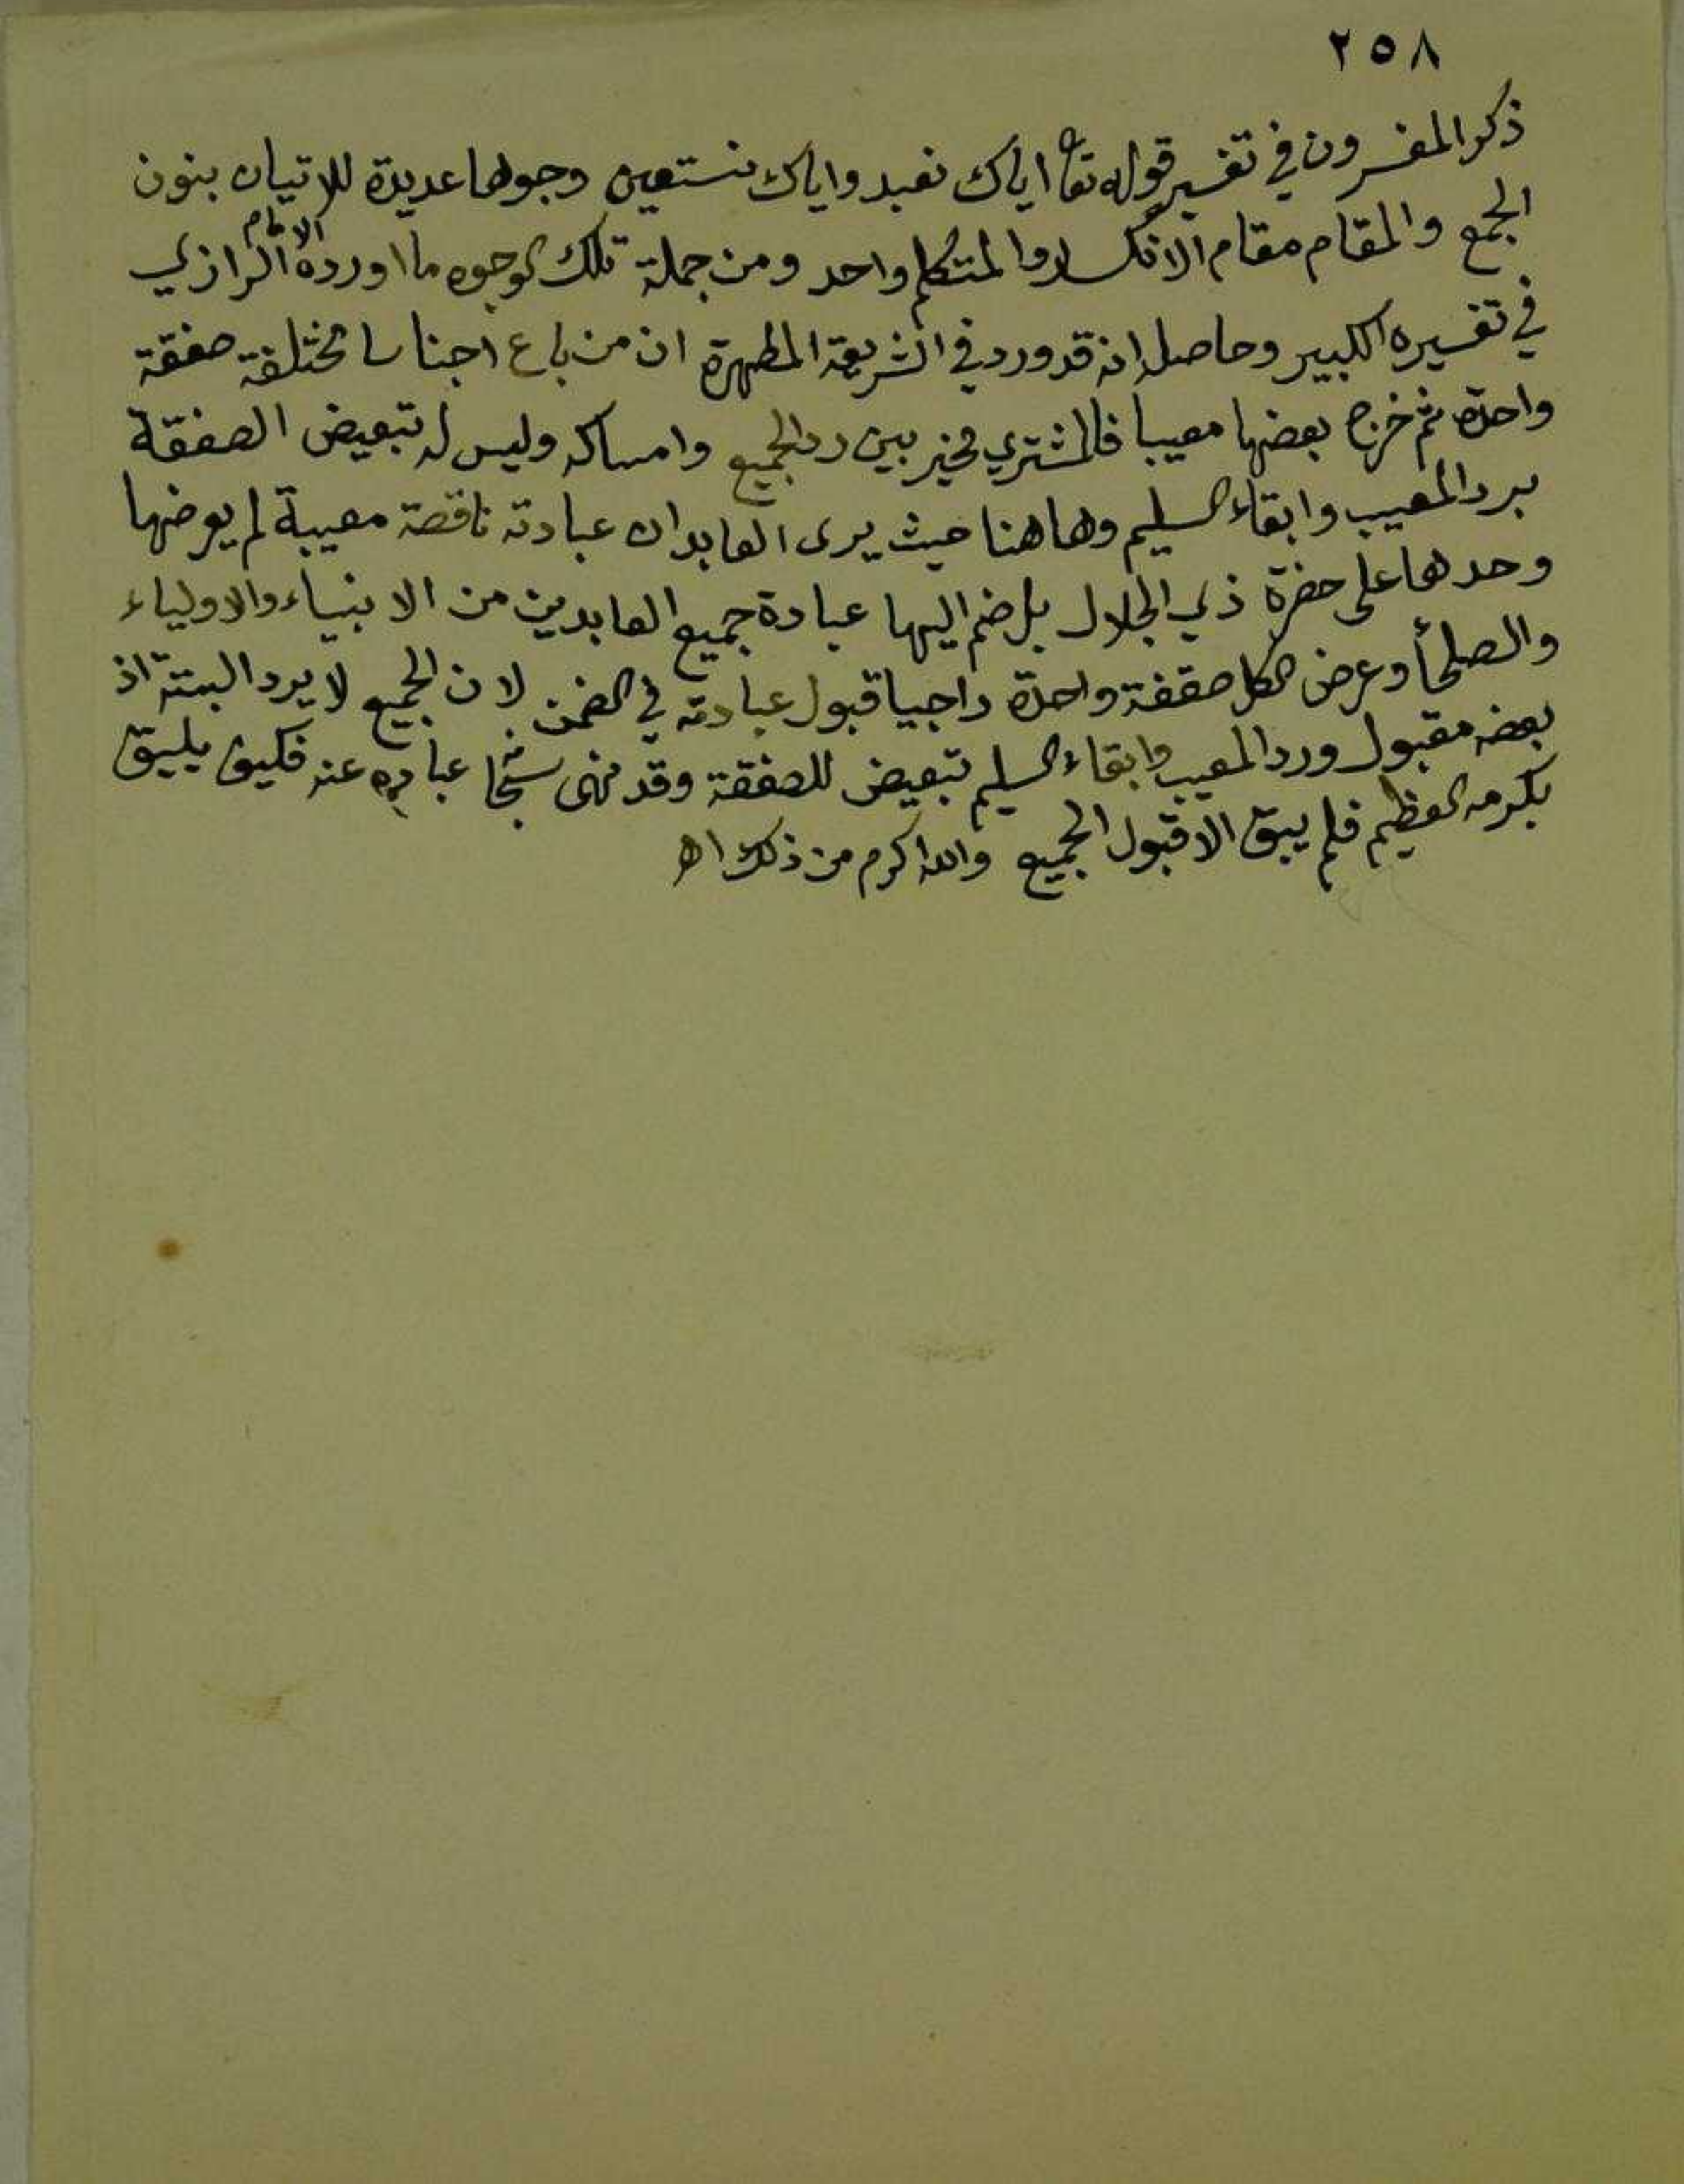 ٢٥٨
ذكر المفسرون في تفسير قوله تعا اياك نعبد واياك نستعين وجوها عديدة للاتيان بنون
الجمع والمقام مقام الانكسار والمتكلم واحد ومن جملة تلك الوجوه ما اورده الامام الرازي
في تفسيره الكبير وحاصله انه قد ورد في الشريعة المطهرة ان من باع اجناسا مختلفة صفقة
واحدة ثم خرج بعضها معيبا فالمشتري مخير بين رد الجميع وامساكه وليس له تبعيض الصفقة
برد المعيب وابقاء السليم وهاهنا حيث يرى العابد ان عبادته ناقصة معيبة لم يعرضها
وحدها على حضرة ذي الجلال بل ضم اليها عبادة جميع العابدين من الانبياء والاولياء
والصلحأ وعرض الكل صفقة واحدة راجيا قبول عبادته في الضمن لان الجميع لا يرد البتة اذ
بعضه مقبول ورد المعيب وابقاء السليم تبعيض للصفقة وقد نهى سبحا عباده عنه فكيف يليق
بكرمه العظيم فلم يبق الا قبول الجميع والله اكرم من ذلك اهـ